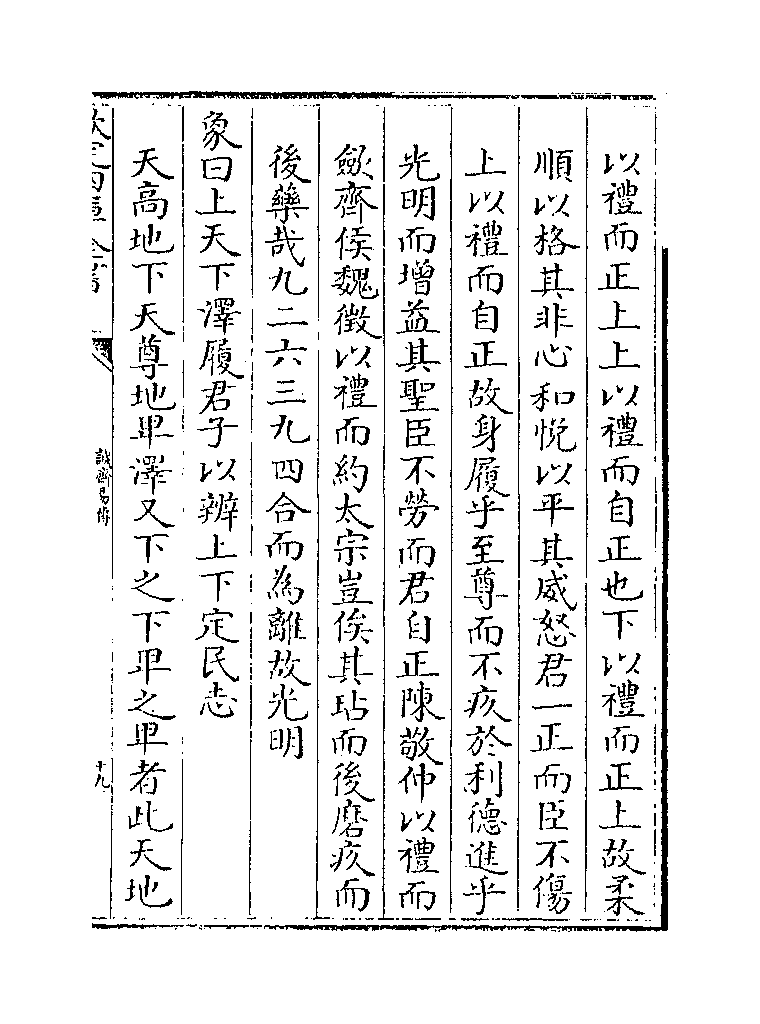 以禮而正上上以禮而自正也下以禮而正上故柔
順以格其非心和悅以平其威怒君一正而臣不傷
上以禮而自正故身履乎至尊而不疚於利德進乎
光明而增益其聖臣不勞而君自正陳敬仲以禮而
斂齊侯魏徵以禮而約太宗豈俟其玷而後磨疚而
後藥哉九二六三九四合而為離故光明
象曰上天下澤履君子以辨上下定民志
天高地下天尊地卑澤又下之下卑之卑者此天地
誠齋易傳
十九